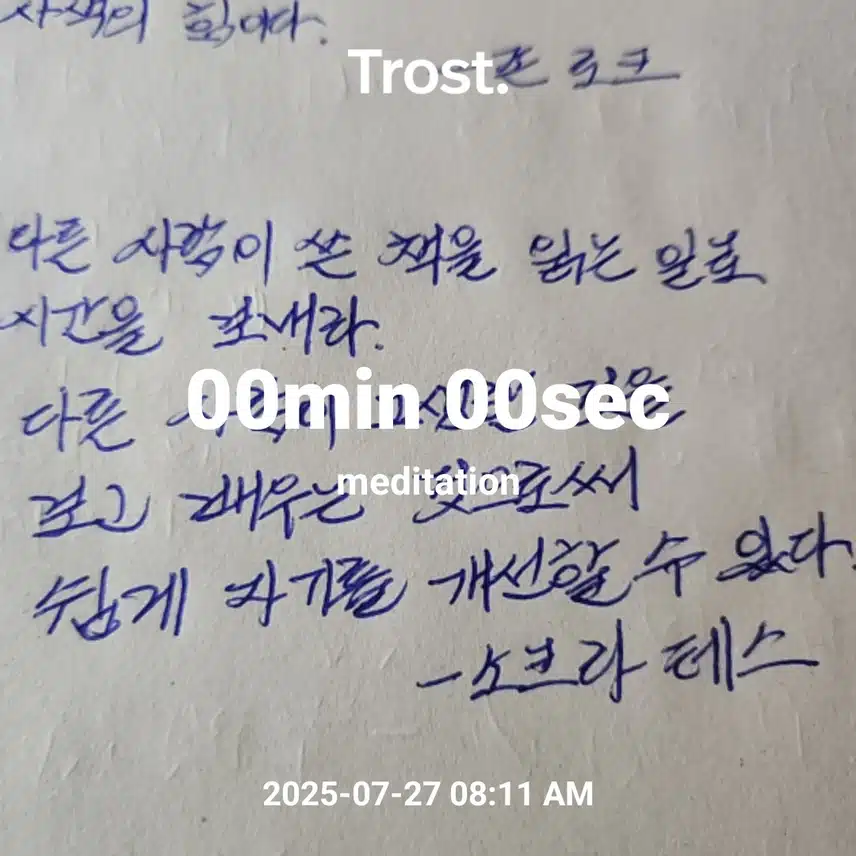 사색의 힘이다.
Trost.
- 존 로크
다른 사람이 쓴 책을 읽는 일로
시간을 보내라.
다른 것을
00min 00sec
보고 배우는
meditation
쉽게 자기를 개선할 수 있다.
-소크라테스
2025-07-27 08:11 AM